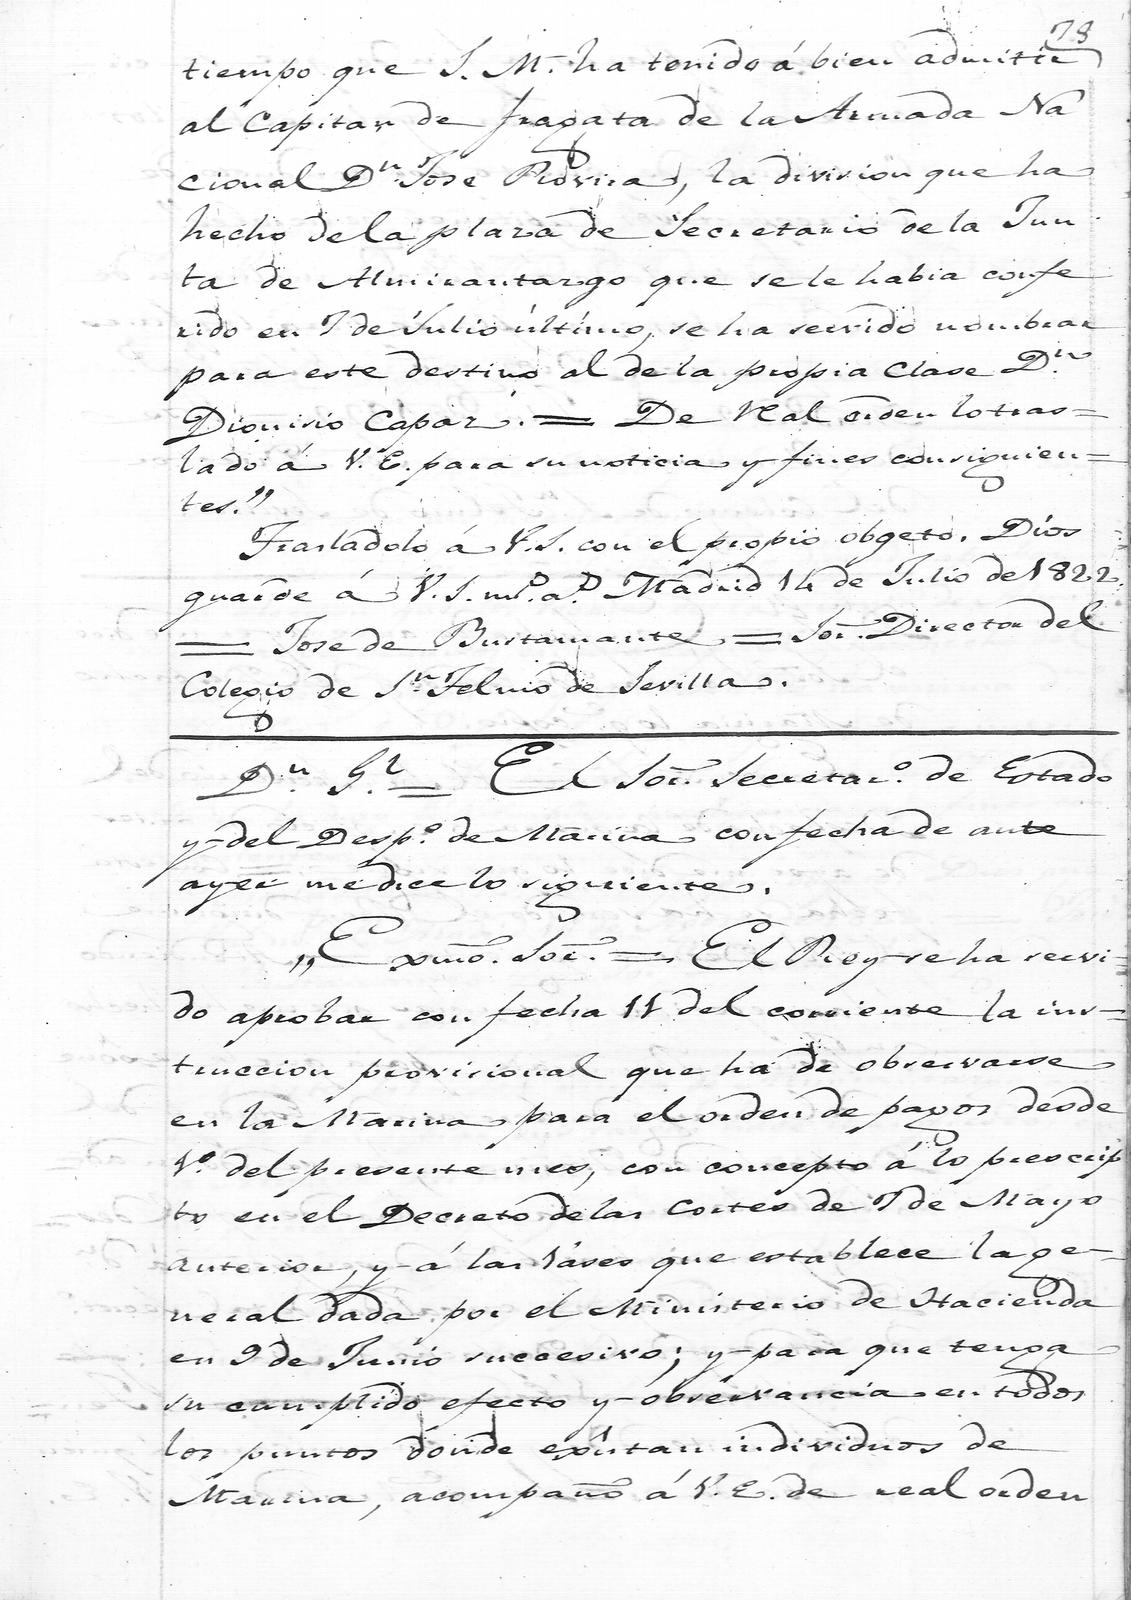 78
tiempo que S. M. ha tenido á bien admitir
al Capitan de fragata de la Armada Na
cional Dn. Jose Rovira, la division que ha
hecho de la plaza de Secretario de la Jun
ta de Almirantazgo que se le habia confe
rido en 7 de Julio último, se ha servido nombrar
para este destino al de la propia clase Dn.
Dionisio Capaz. = De Real orden lo tras=
lado á V. E. para su noticia y fines consiguien=
tes."
Trasladolo á V. S. con el propio obgeto. Dios
guarde á V. S. ms. as. Madrid 14 de Julio de 1822.
= Jose de Bustamante = Sor. Director del
Colegio de Sn. Telmo de Sevilla.
Dn. Gl. = El Sor. Secretaro. de Estado
y del Despo. de Marina con fecha de ante
ayer me dice lo siguiente.
„Exmo. Sor. = El Rey se ha servi=
do aprobar con fecha 11 del corriente la ins=
truccion provisional que ha de observarse
en la Marina para el orden de pagos desde
1o. del presente mes, con concepto á lo prescrip
to en el Decreto de las Cortes de 7 de Mayo
anterior, y á las váses que establece la ge=
neral dada por el Ministerio de Hacienda
en 9 de Junio succesivo; y para que tenga
su cumplido efecto y observancia en todos
los puntos donde exîstan individuos de
Marina, acompaño á V. E. de real orden